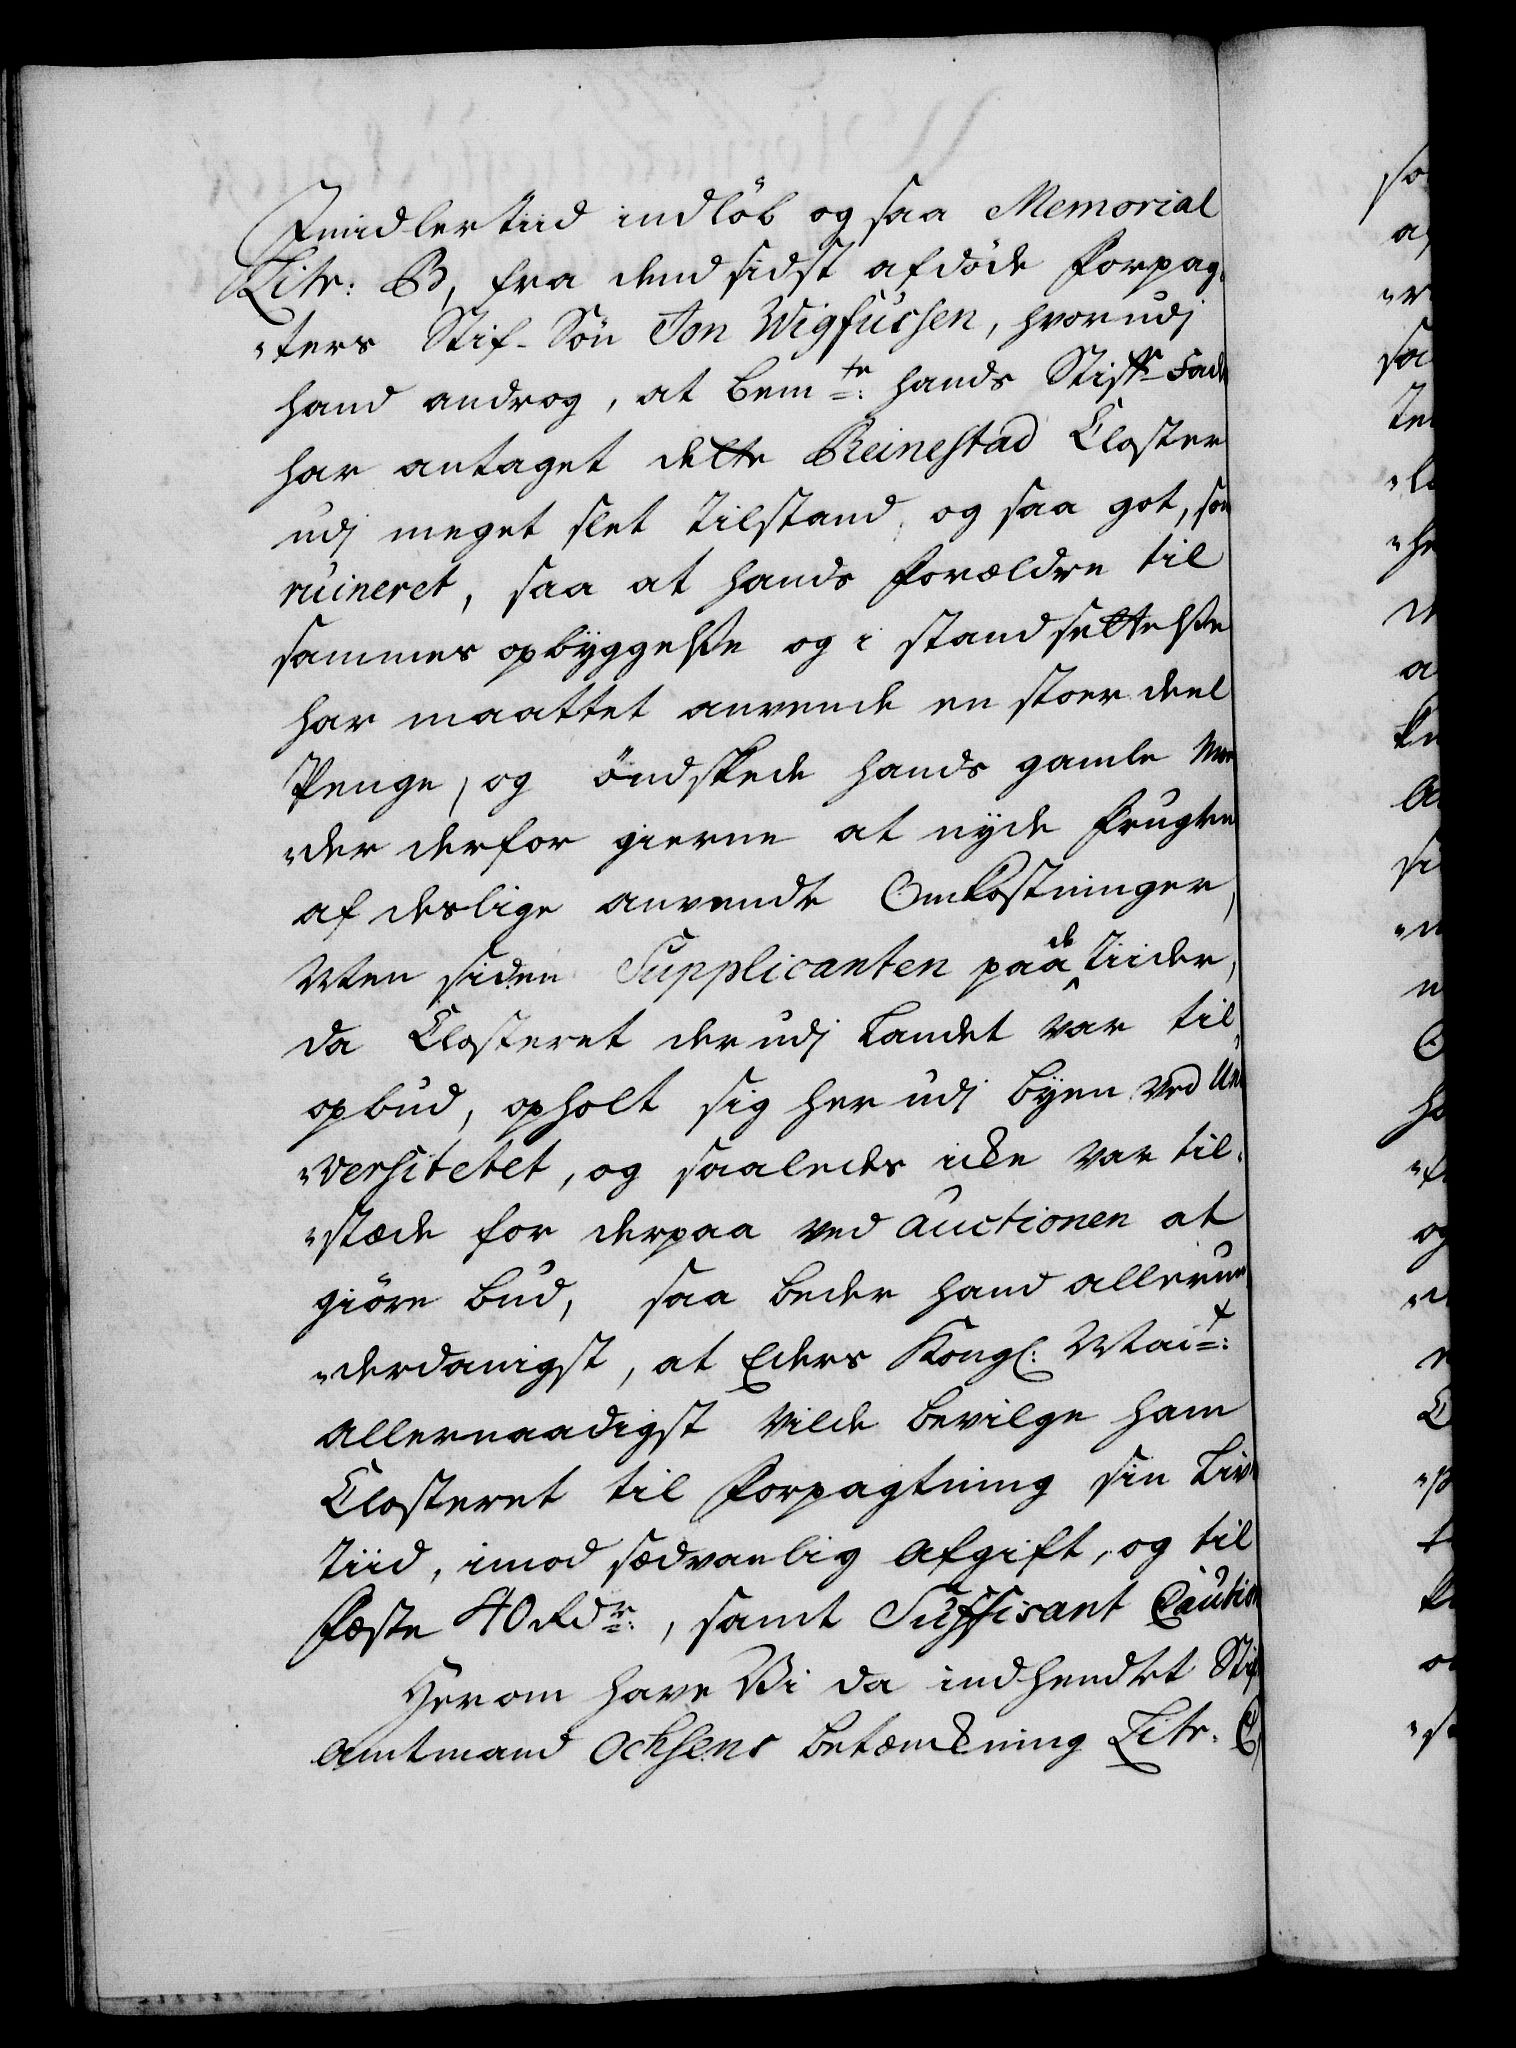 Imidlertiid indløb og saa Memorial
Litr: B, fra dend sidst afdøde Forpag-
„ters Stif-Søn Jon Wigfussen, hvorudj
hand androg, at bem:te hands Stiff-Fad
har antaget dette Reinestad Closter
udj meget slet tilstand, og saa got, som
ruineret, saa at hands Forældre til
sammes opbyggelse og i stand settelse
har maattet anvende en stoer deel
Penge, og ønskede hands gamle Moe
„der derfor gierne at nyde Frugten
af deslige anvendte Omkostninger,
Men siden Supplicanten paa de Tiider,
da Closteret der udj Landet var til
opbud, opholt sig her udj Byen ved Uni
„versitetet, og saaledes icke var til-
„stæde for derpaa ved auctionen at
giøre bud, saa beder hand allerun
„derdanigst, at Eders Kongl: Mai:t
allernaadigst vilde bevilge ham
Closteret til Forpagtning sin Livs
Tiid, imod sædvanlig afgift, og til
Fæste 40 Rdr:, samt Suffisant Caution
Herom have Vi da indhendtet Stif
amtmand Ochsens betænkning Litr. C,